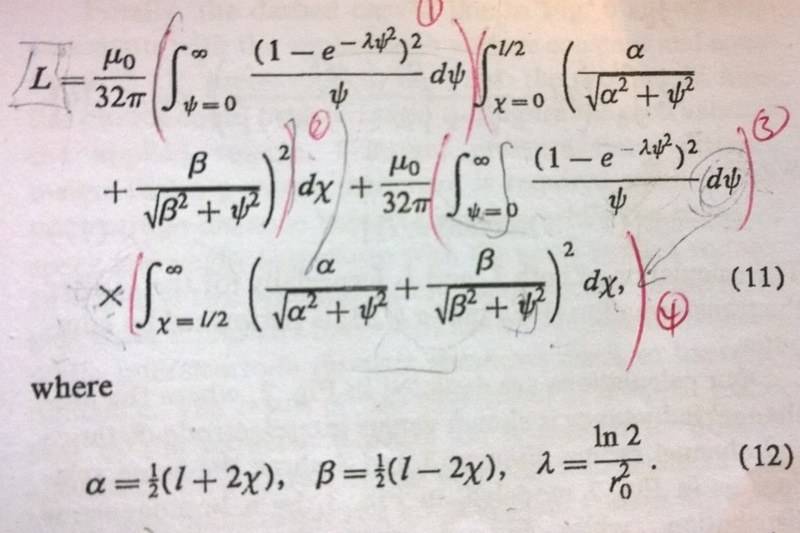 ①
L = μ₀/32π ( ∫_{ψ=0}^{∞} (1 − e^{−λψ²})²/ψ dψ ) ∫_{χ=0}^{l/2} ( α/√(α² + ψ²)
② ③
+ β/√(β² + ψ²) )² dχ + μ₀/32π ( ∫_{ψ=0}^{∞} (1 − e^{−λψ²})²/ψ dψ )
× ( ∫_{χ=l/2}^{∞} ( α/√(α² + ψ²) + β/√(β² + ψ²) )² dχ, ) (11)
④
where
α = ½(l + 2χ), β = ½(l − 2χ), λ = ln 2/r₀². (12)